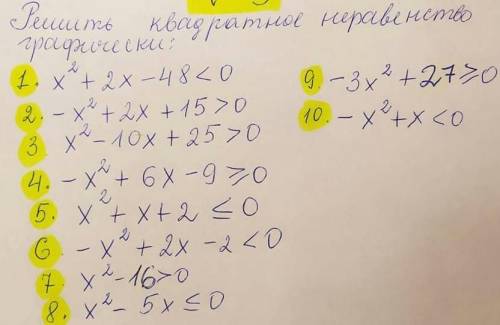 Решить квадратное неравенство
графически:
1. x² + 2x - 48 < 0
2. - x² + 2x + 15 > 0
3. x² - 10x + 25 > 0
4. - x² + 6x - 9 ⩾ 0
5. x² + x + 2 ≤ 0
6. - x² + 2x - 2 < 0
7. x² - 16 > 0
8. x² - 5x ≤ 0
9. - 3x² + 27 ⩾ 0
10. - x² + x < 0